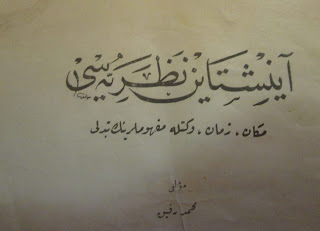 آینشتاین نظریه‌سی
مكان، زمان، وكتله مفهوملرینك تبدلی
مؤلفی
محمد رفیق